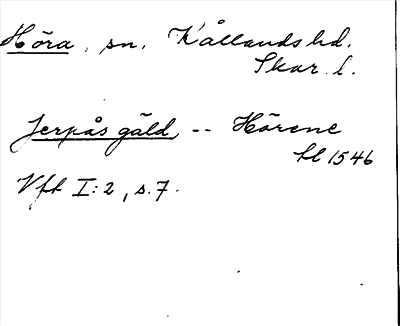 Höra, sn, Kållands hd.
Skar. l.
Jerpås gäld -- Hörene
hl 1546
Vft I:2, s. 7.